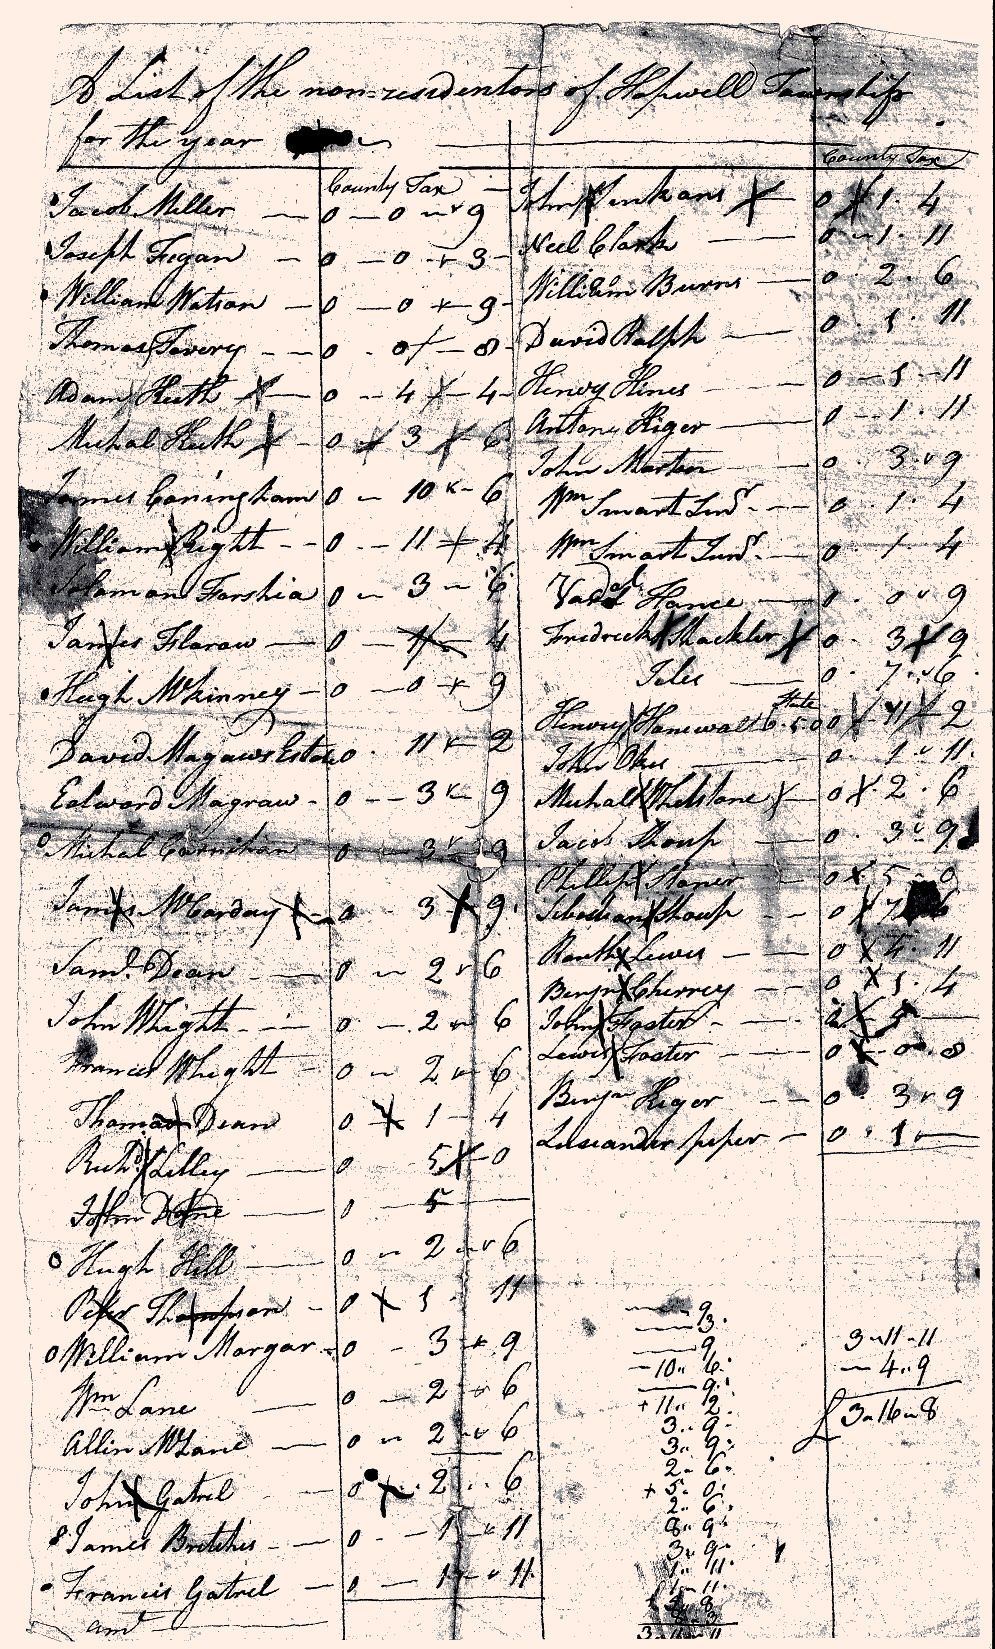 A List of the non=residentors of Hopwell Township
for the year
County Tax
Jacob Miller — 0 — 0 9
Joseph Fegan — 0 — 0 3
William Watson — 0 — 0 9
Thomas Tovery — 0 - 0 — 8
Adam Huth — 0 - 4 - 4
Michal Huth - 0 3 6
James Coningham 0 - 10 6
William Right - - 0 - - 11 4
Soloman Forshia 0 - 3 - 6
James Floraw — 0 — 4
Hugh McKinney - 0 - 0 9
David Magaws Estate 0 . 11 2
Edward Magraw - 0 - - 3 9
Michal Carnihan 0 — 3 9
James McCarday - 0 - 3 9
Saml. Dean — 0 - 2 6
John Whight - — 0 — 2 6
Francis Whight 0 - 2 6
Thomas Dean 0 1 - 4
Richd Lilley — 0 - 5 - 0
John Dane — 0 - 5 —
Hugh Hill — 0 - 2 6
Peter Thompson - 0 1 - 11
William Morgar - 0 - 3 9
Wm Lane — 0 - 2 6
Allin McLane — 0 - 2 6
John Gatrel 0 . 2 . . 6
James Britches - — 0 - - 1 11
Francis Gatrel — 0 — 1 11
amt
County Tax
John Jenkans 0 1 . 4
Neel Clark — 0 - 1 . 11
William Burns — 0 . 2 . 6
David Ralph — 0 . 1 . 11
Henry Hines — 0 - 1 - 11
Antony Kiger — 0 - - 1 . 11
John Morton — 0 . 3 9
Wm Smart Senr. - - 0 . 1 . 4
Wm Smart Junr. — 0 . 1 . 4
Hance — 0 . 0 9
Fredrick Shackler 0 . 3 9
Ditto — 0 . 7 6
Henrey Hanewalt State 0.5.0 0 11 2
John Oker — 0 . 1 11
Michall Whelstone 0 2 . 6
Jacob Shoup — 0 . 3 9
Phillip Stoner — 0 5 - 0
Sebastian Shoup - - 0 7 6
Lewis — 0 11
Benjn Cherrey — 0 1 . 4
John Foster - — 2
Lewis Foster — 0 - 0 . 8
Benjan Kiger - - 0 . 3 9
piper — 0 . 1 —
— 9
— 3.
— 9
- 10 .. 6
— 9
+ 11 .. 2
3 .. 9
3 .. 9
2 .. 6
+ 5 .. 0
2 .. 6
8 .. 9
3 .. 9
1 .. 11
1 .. 11
3 - 11 - 11
3 - 11 - 11
— 4 .. 9
£ 3 - 16 - 8